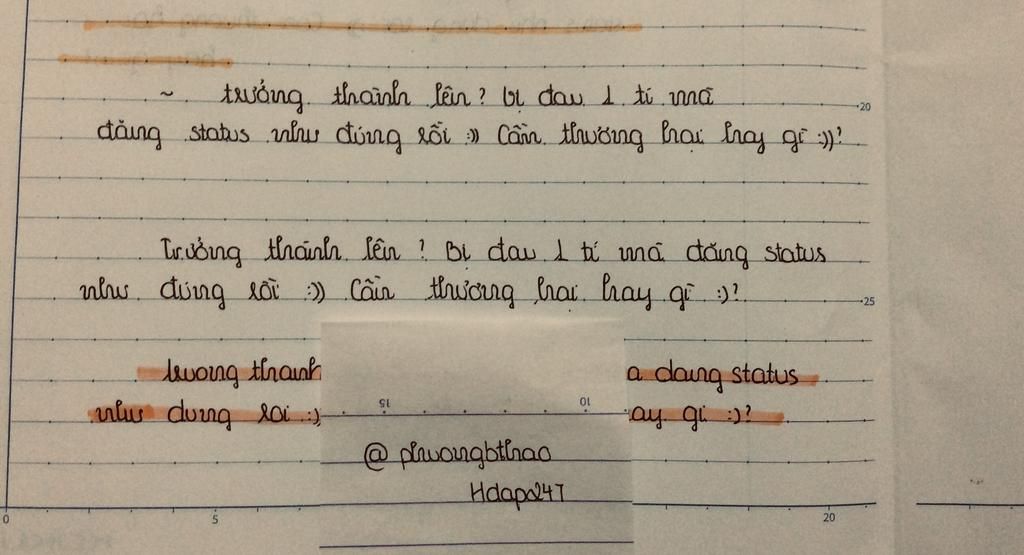 ~ trưởng thành lên? Bị đau 1 tí mà
đăng status như đúng rồi :)) Cần thương hại hay gì :))?
Trưởng thành lên? Bị đau 1 tí mà đăng status
như đúng rồi :)) Cần thương hại hay gì :)?
truong thanh a dang status
như dung roi :) ay gi :)?
@ phuongbthao
Hdapa247
20
25
15
10
0
5
20